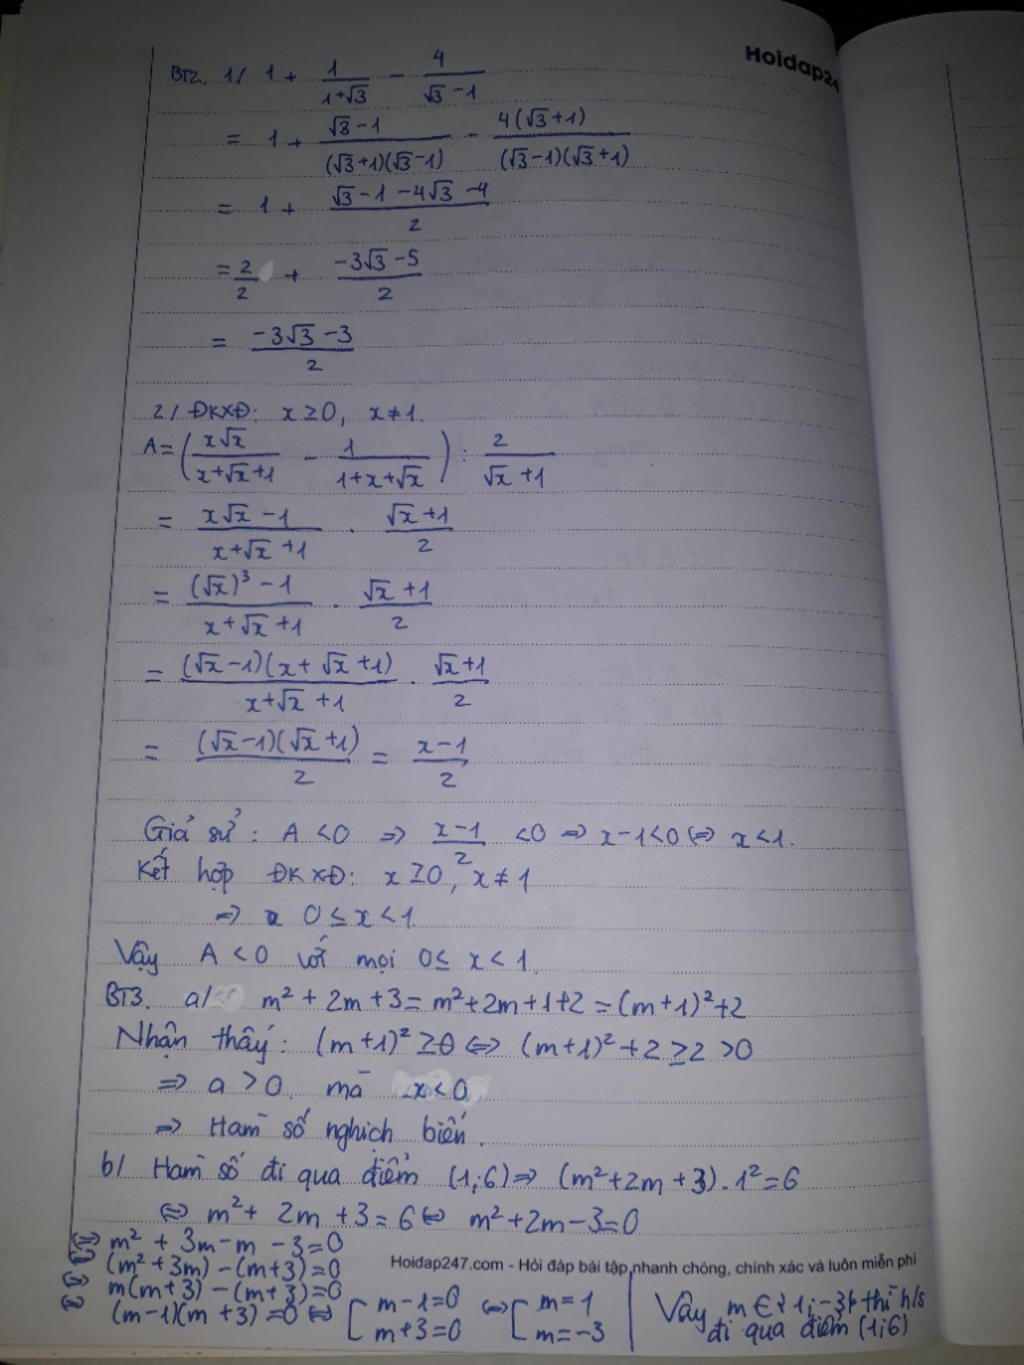 Hoidap24
BT2. 1/ 1 + 1/(1+√3) - 4/(√3 -1)
= 1 + (√3 -1)/((√3+1)(√3-1)) - 4(√3+1)/((√3-1)(√3+1))
= 1 + (√3 -1 -4√3 -4)/2
= 2/2 + (-3√3 -5)/2
= (-3√3 -3)/2
2/ ĐKXĐ: x ≥0, x ≠ 1.
A = (x√x/(x+√x+1) - 1/(1+x+√x)) : 2/(√x +1)
= (x√x -1)/(x+√x +1) . (√x +1)/2
= ((√x)³ -1)/(x+√x +1) . (√x +1)/2
= (√x -1)(x+ √x +1)/(x+√x +1) . (√x+1)/2
= (√x-1)(√x+1)/2 = (x-1)/2
Giả sử: A <0 => (x-1)/2 <0 => x-1<0 <=> x<1.
Kết hợp ĐKXĐ: x ≥0, x ≠ 1
=> 0 ≤ x < 1.
Vậy A < 0 với mọi 0≤ x < 1.
BT3. a/ m² + 2m +3 = m²+2m+1+2 = (m+1)²+2
Nhận thấy: (m+1)² ≥0 <=> (m+1)² +2 ≥2 >0
=> a >0. mà x<0
=> Hàm số nghịch biến.
b/ Hàm số đi qua điểm (1;6) => (m²+2m+3).1²=6
<=> m²+ 2m +3 = 6 <=> m²+2m-3=0
<=> m² + 3m -m - 3=0
<=> (m² +3m) -(m+3) =0
<=> m(m+3) -(m+3)=0
<=> (m-1)(m +3) =0 <=> [m-1=0 <=> [m=1
m+3=0 m=-3
Vậy m ∈ {1;-3} thì h/s
đi qua điểm (1;6)
Hoidap247.com - Hỏi đáp bài tập nhanh chóng, chính xác và luôn miễn phí